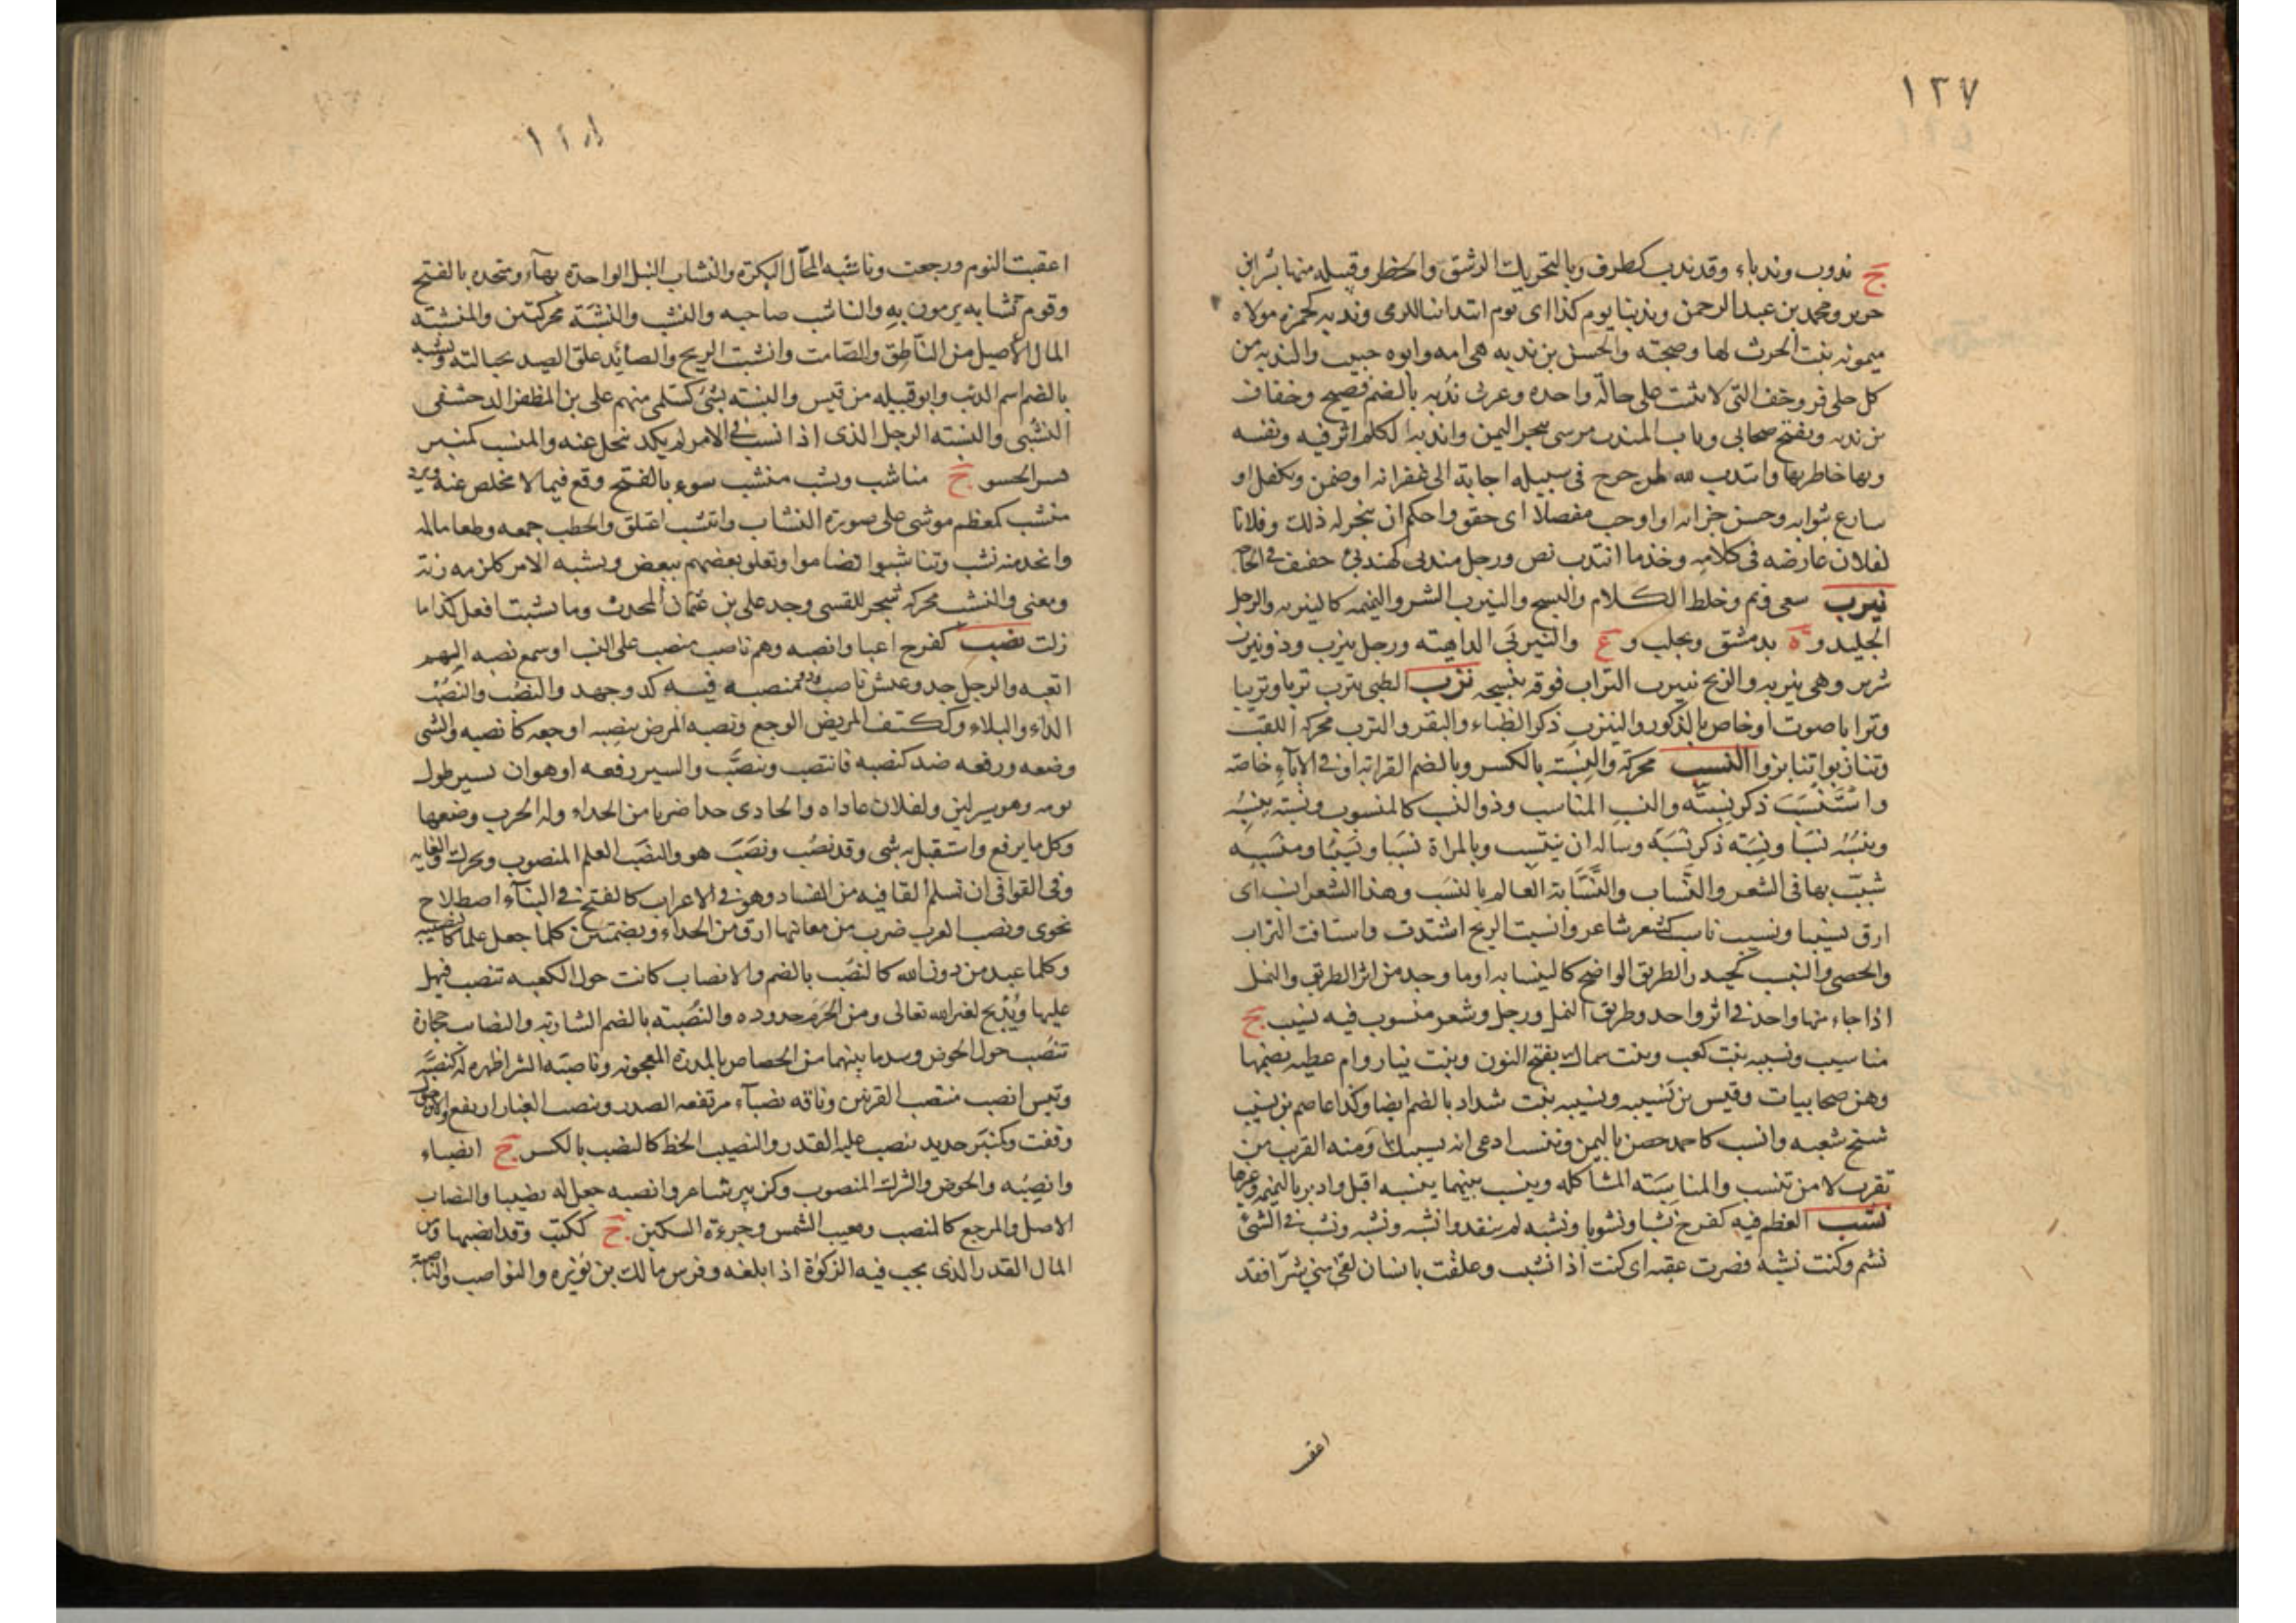 ١٢٧
ج ندوب وندباء وقد ندب كطرف وبالتحريك الرشق والخطر وقبيله منها بشر بن
حرير ومحمد بن عبد الرحمن وندبنا يوم كذا اى يوم انتدابنا للرمى وندبه كحمزه مولاه
ميمونه بنت الحرث لها وصحبته والحسن بن ندبه هى امه وابوه حبيب والندبه من
كل حافر وخف التى لا تثبت على حالة واحده وعربى ندبه بالضم فصيح وخفاف
بن ندبه ويفتح صحابى وباب المندب مرسى ببحر اليمن واندبه الكلم اثر فيه ونفسه
وبها خاطر بها وانتدب لله لمن خرج فى سبيله اجابة الى غفرانه او ضمن وتكفل او
سارع بثوابه وحسن جزائه او اوجب مفصلا اى حقق واحكم ان ينجز له ذلك وفلانا
لفلان عارضه فى كلامه وخذ ما انتدب نص ورجل مندبى كهندبى خفيف فى الحاجة
نيرب سعى ونم وخلط الكلام والنسج والنيرب الشر والنميمه كالنيربه والرجل
الجليد و ه بدمشق وبحلب و ع والنيربى الداهيته ورجل نيرب وذو نيرب
شرير وهى نيربه والريح نيرب التراب فوقه ينسجه نزب الظبى ينزب نزبا ونزيبا
ونزابا صوت او خاص بالذكور والنيزب ذكر الظباء والبقر والنزب محركة اللقب
وتنازبوا تنابزوا النسب محركة والنسبة بالكسر وبالضم القرابه او فى الآباء خاصة
واستنسب ذكر نسبته والنسب المناسب وذو النسب كالمنسوب ونسبه ينسبه
وينسبه نسبا ونسبة ذكر نسبه وساله ان ينتسب وبالمراة نسبا ونسيبا ومنسبه
شبب بها فى الشعر والنساب والنسابة العالم بالنسب وهذا الشعر انسب اى
ارق نسيبا ونسيب ناسب كشعر شاعر وانسبت الريح اشتدت واستافت التراب
والحصى والنيسب كحيدر الطريق الواضح كالنيسبان او ما وجد من اثر الطريق والنمل
اذا جاء منها واحد فى اثر واحد وطريق النمل ورجل وشعر منسوب فيه نسيب ج
مناسيب ونسيبه بنت كعب وبنت سماك بفتح النون وبنت نيار وام عطيه بضمها
وهن صحابيات وقيس بن نسيبه ونسيبه بنت شداد بالضم ايضا وكذا عاصم بن نسيب
شيخ شعبه وانسب كاحمد حصن باليمن وتنسب ادعى انه نسيبك ومنه القرب من
تقرب لا من تنسب والمناسبته المشاكله ونيسب بينهما نيسبه اقبل وادبر بالنميمه وغيرها
نشب العظم فيه كفرح نشبا ونشوبا ونشبه لم ينفذ وانشبه ونشبه ونشب فى الشئ
نشم وكنت نشبه فصرت عقبه اى كنت اذا نشبت وعلقت بانسان لقى منى شرا فقد
اعقبت
اعقبت النوم ورجعت وناشبه المحال البكرة والنشاب النبل الواحدة بهاء ومتخذه بالفتح
وقوم نشابه يرمون به والناشب صاحبه والنشب والنشبة محركتين والمنشبة
المال الاصيل من الناطق والصامت وانشبت الريح والصائد علق الصيد بحبالته ونشبه
بالضم اسم الذئب وابو قبيله من قيس والنسبته نشبى كسلمى منهم على بن المظفر الدمشقى
النشبى والنشبته الرجل الذى اذا نشب فى الامر لم يكد ينحل عنه والمنشب كمنبر
بسر الحشو ج مناشب ونشب منشب سوء بالفتح وقع فيما لا مخلص عنه وبرد
منشب كمعظم موشى على صورة النشاب وانتشب اعتلق والحطب جمعه وطعاما لمه
واتخذ منه نشب وتناشبوا تضاموا وتعلق بعضهم ببعض ونشبه الامر كلزمه زنة
ومعنى والنشب محركة شجر للقسى وجد على بن عثمان المحدث وما نشبت افعل كذا ما
زلت نصب كفرح اعيا وانصبه وهم ناصب منصب على النسب او سمع نصبه الهم
اتعبه والرجل جد وعيش ناصب وذو منصبه فيه كد وجهد والنصب والنصب
الداء والبلاء وككتف المريض الوجع ونصبه المرض ينصبه اوجعه كانصبه والشى
وضعه ورفعه ضد كنصبه فانتصب وتنصب والسير رفعه او هو ان تسير طول
يومه وهو سير لين ولفلان عاداه والحادى حدا ضربا من الحداء وله الحرب وضعها
وكل ما يرفع واستقبل به شى وقد نصب ونصب هو والنصب العلم المنصوب ويحرك والغايه
وفى القوافى ان تسلم القافيه من الفساد وهو فى الاعراب كالفتح فى البناء اصطلاح
نحوى ونصب العرب ضرب من مغانيها ارق من الحداء وبضمتين كلما جعل علما كالنصيبه
وكلما عبد من دون الله كالنصب بالضم والانصاب كانت حول الكعبه تنصب فيهل
عليها ويذبح لغير الله تعالى ومن الحرم حدوده والنصبته بالضم الساريه والنصايب حجارة
تنصب حول الحوض وسد ما بينهما من الخصاص بالمدرة المعجونه وناصبه الشر اظهره له كنصبه
وتيس انصب منتصب القرنين وناقه نصباء مرتفعه الصدر وتنصب الغبار ارتفع والاتن حول
وقفت وكمنبر حديد ينصب عليه القدر والنصيب الحظ كالنصب بالكسر ج انصباء
وانصبه والحوض والشرك المنصوب وكزبير شاعر وانصبه جعل له نصيبا والنصاب
الاصل والمرجع كالمنصب ومغيب الشمس وجزءة السكين ج ككتب وقد انصبها ومن
المال القدر الذى يجب فيه الزكوة اذا بلغه وفرس مالك بن نويرة والنواصب والناصبة